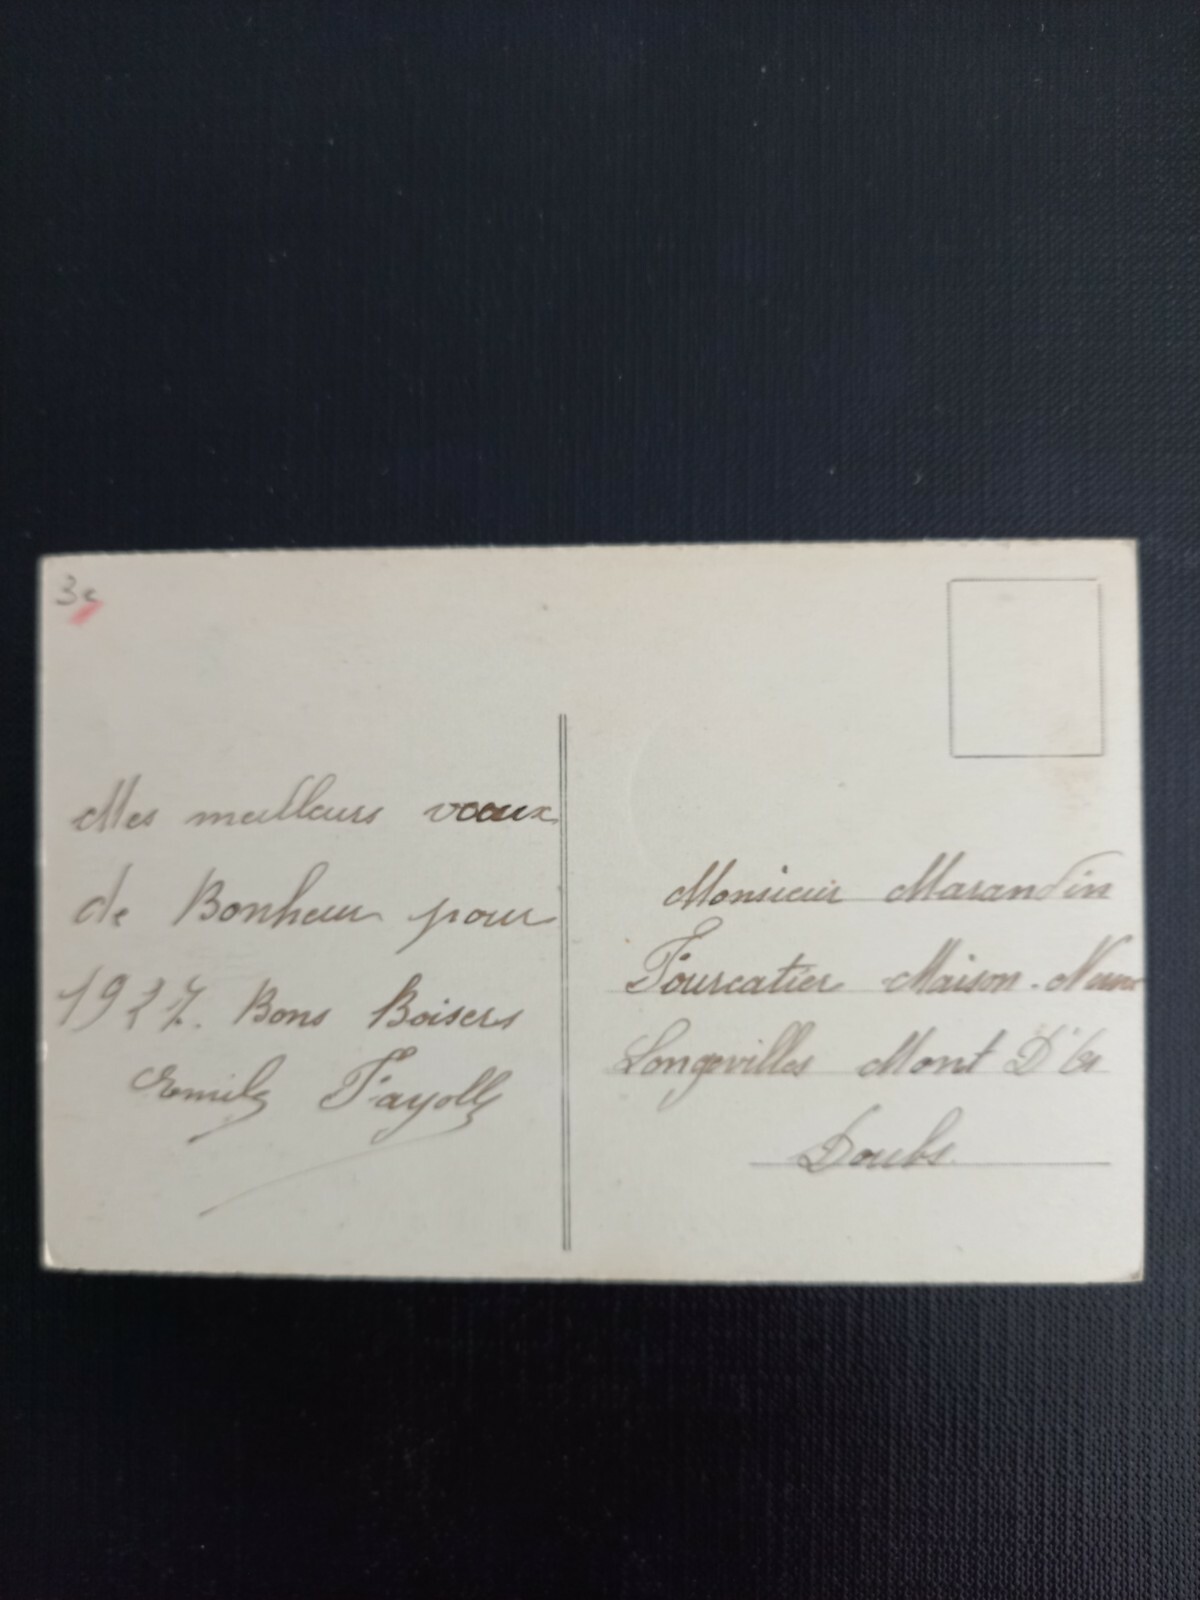 3e
Mes meilleurs voeux
de Bonheur pour
1927. Bons Baisers
Emile Fayolle
Monsieur Marandin
Fourcatier Maison-Neuve
Longevilles Mont D'Or
Doubs